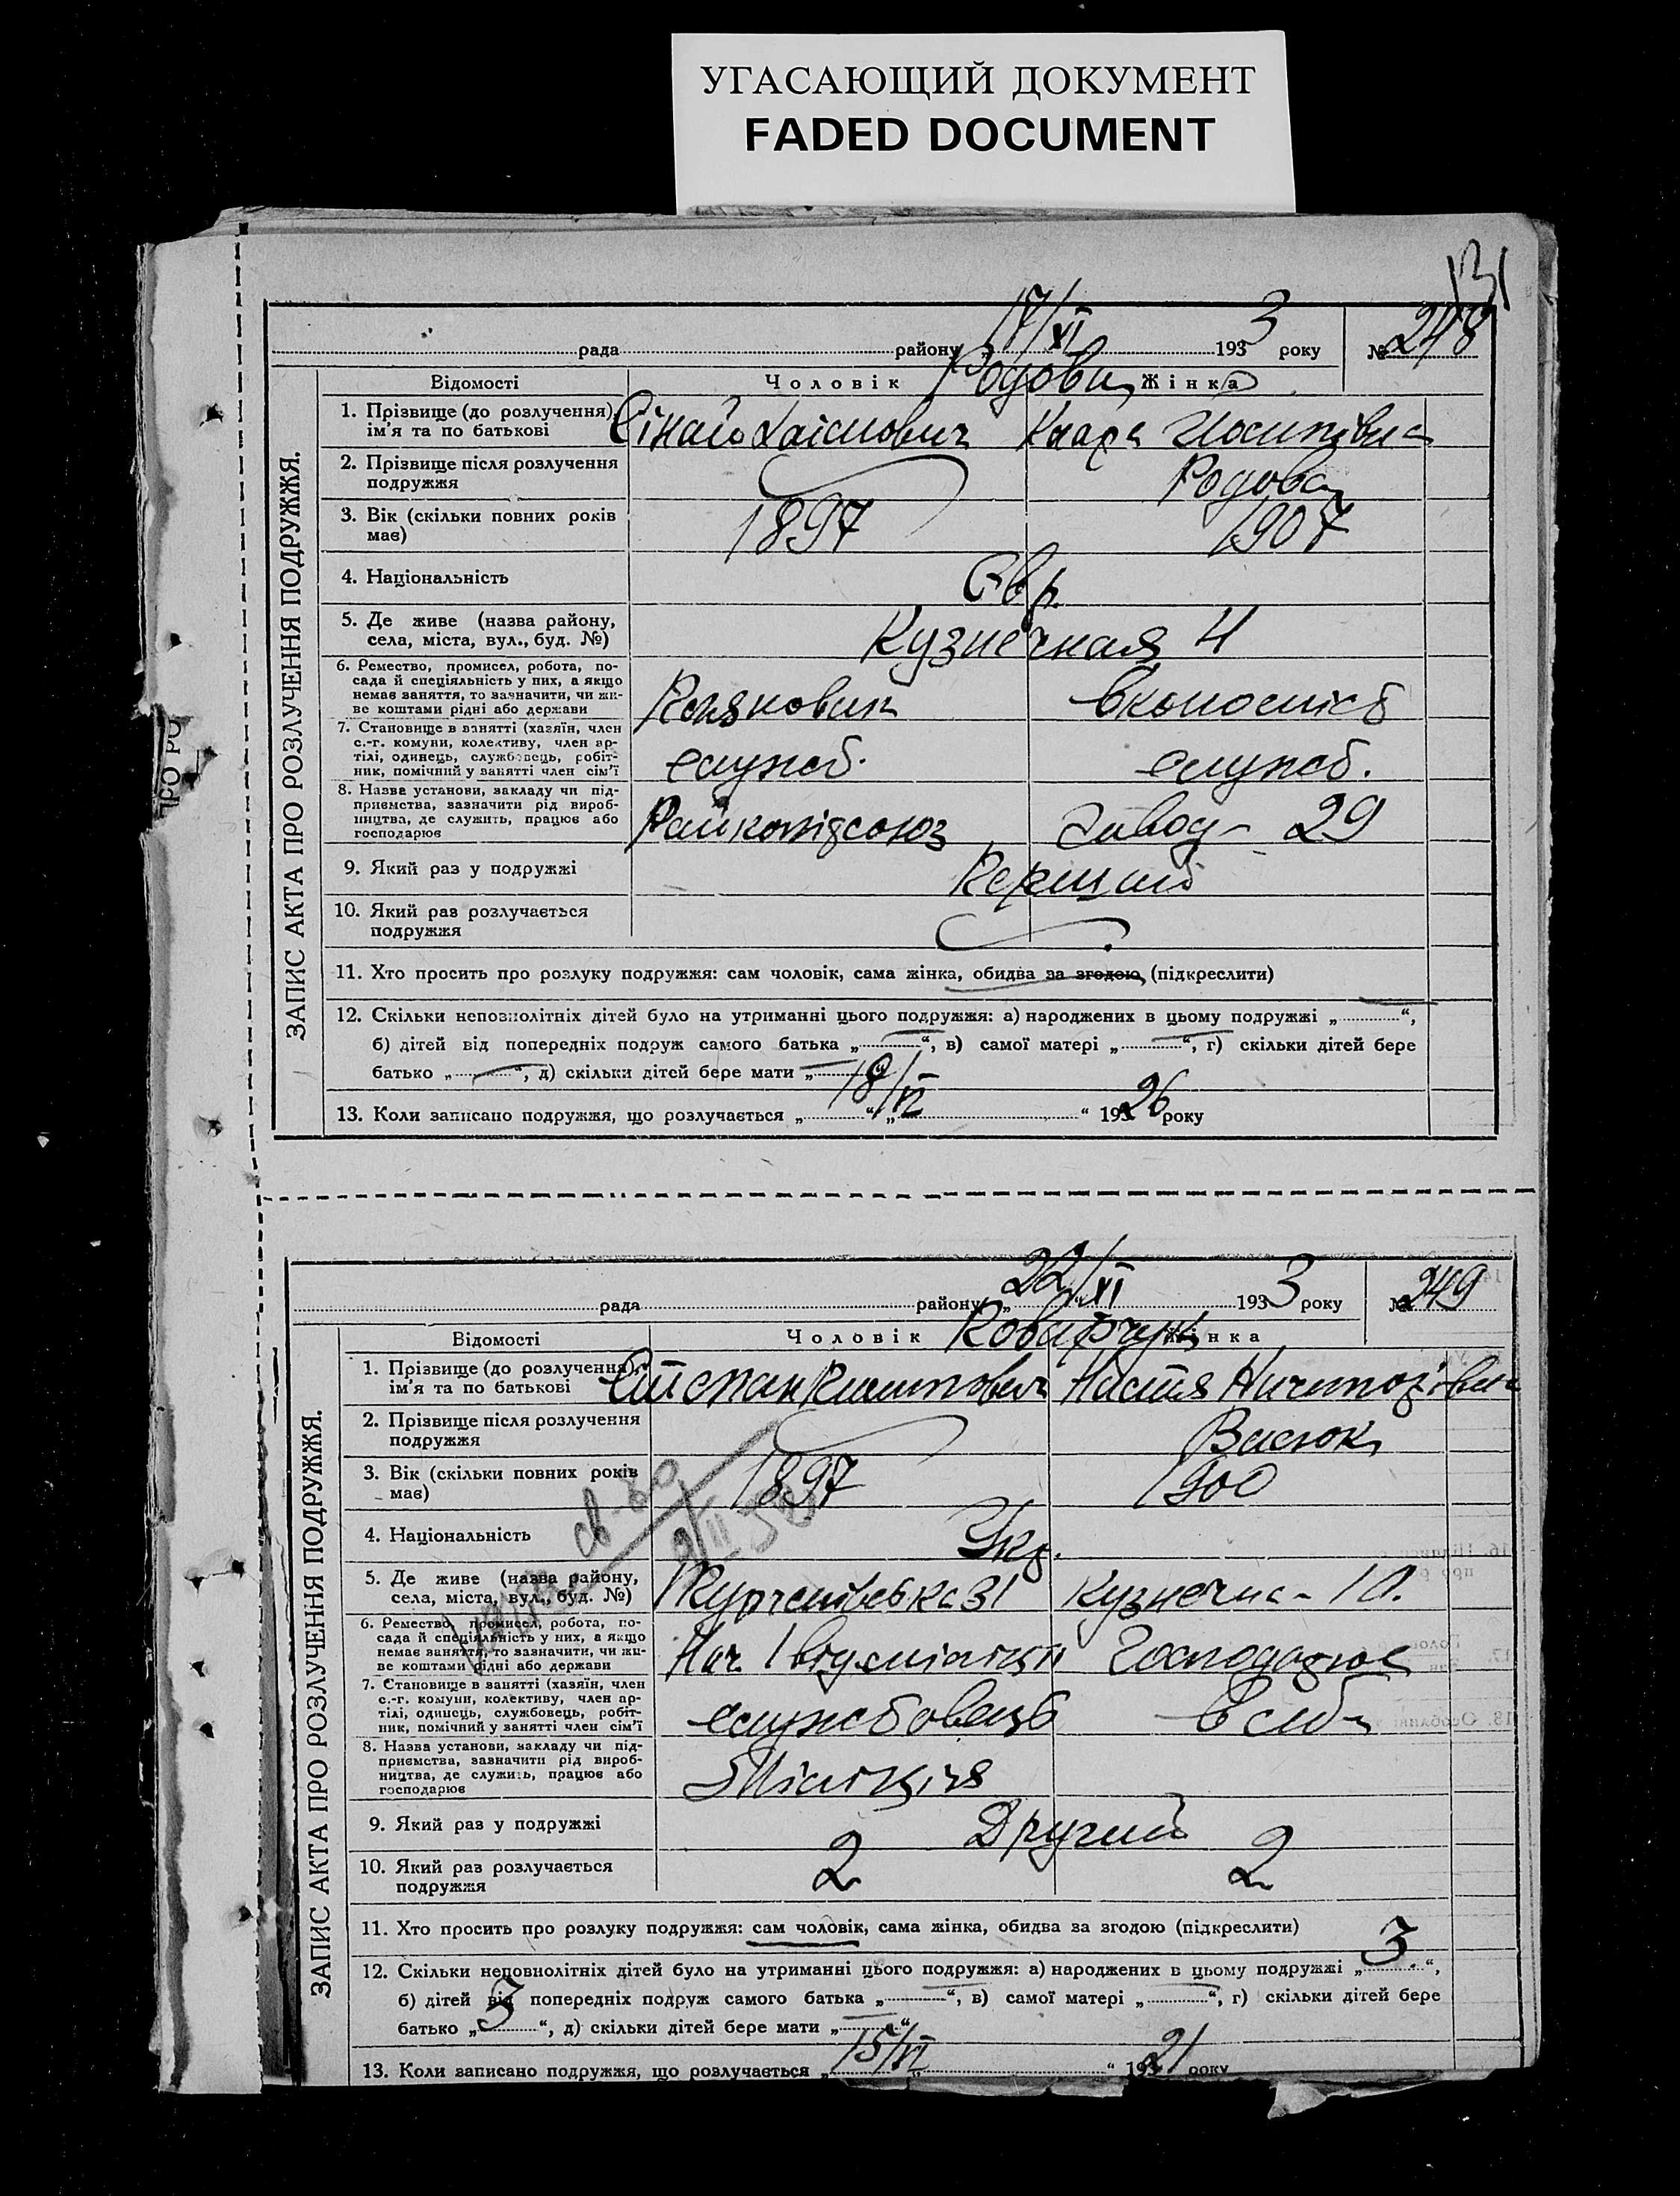 УГАСАЮЩИЙ ДОКУМЕНТ
FADED DOCUMENT
131
ЗАПИС АКТА ПРО РОЗЛУЧЕННЯ ПОДРУЖЖЯ.
рада району „17/XI 1933 року № 248
Відомості Чоловік Жінка
Родови
1. Прізвище (до розлучення), ім'я та по батькові Сінай Хаімович Клара Йосипівна
2. Прізвище після розлучення подружжя Родова
3. Вік (скільки повних років має) 1897 1907
4. Національність Євр.
5. Де живе (назва району, села, міста, вул., буд. №) Кузнечная 4
6. Ремество, промисел, робота, посада й спеціяльність у них, а якщо немає заняття, то зазначити, чи живе коштами рідні або держави Плановик Економіст
7. Становище в занятті (хазяїн, член с.-г. комуни, колективу, член артілі, одинець, службовець, робітник, помічний у занятті член сім'ї служб. служб.
8. Назва установи, закладу чи підприємства, зазначити рід виробництва, де служить, працює або господарює завод - 29
9. Який раз у подружжі Перший
10. Який раз розлучається подружжя
11. Хто просить про розлуку подружжя: сам чоловік, сама жінка, обидва за згодою, (підкреслити)
12. Скільки неповнолітніх дітей було на утриманні цього подружжя: а) народжених в цьому подружжі „ “,
б) дітей від попередніх подруж самого батька „ “, в) самої матері „ “, г) скільки дітей бере
батько „ “, д) скільки дітей бере мати „ “
13. Коли записано подружжя, що розлучається „18/VI “ 1926 року
ЗАПИС АКТА ПРО РОЗЛУЧЕННЯ ПОДРУЖЖЯ.
рада району „22/XI 1933 року № 249
Відомості Чоловік Жінка
Ковальчук
1. Прізвище (до розлучення), ім'я та по батькові Степан Настя Ничипорівна
2. Прізвище після розлучення подружжя Васюк
3. Вік (скільки повних років має) 1897 1900
4. Національність Укр.
5. Де живе (назва району, села, міста, вул., буд. №) 31 Кузнечна - 10.
6. Ремество, промисел, робота, посада й спеціяльність у них, а якщо немає заняття, то зазначити, чи живе коштами рідні або держави Нач. 1 від. міліції Господарює
7. Становище в занятті (хазяїн, член с.-г. комуни, колективу, член артілі, одинець, службовець, робітник, помічний у занятті член сім'ї службовець в себе
8. Назва установи, закладу чи підприємства, зазначити рід виробництва, де служить, працює або господарює Міліція
9. Який раз у подружжі Другий
10. Який раз розлучається подружжя 2 2
11. Хто просить про розлуку подружжя: сам чоловік, сама жінка, обидва за згодою (підкреслити)
12. Скільки неповнолітніх дітей було на утриманні цього подружжя: а) народжених в цьому подружжі „ 3 “,
б) дітей від попередніх подруж самого батька „ “, в) самої матері „ “, г) скільки дітей бере
батько „ 3 “, д) скільки дітей бере мати „ “
13. Коли записано подружжя, що розлучається „15/VI “ 1921 року